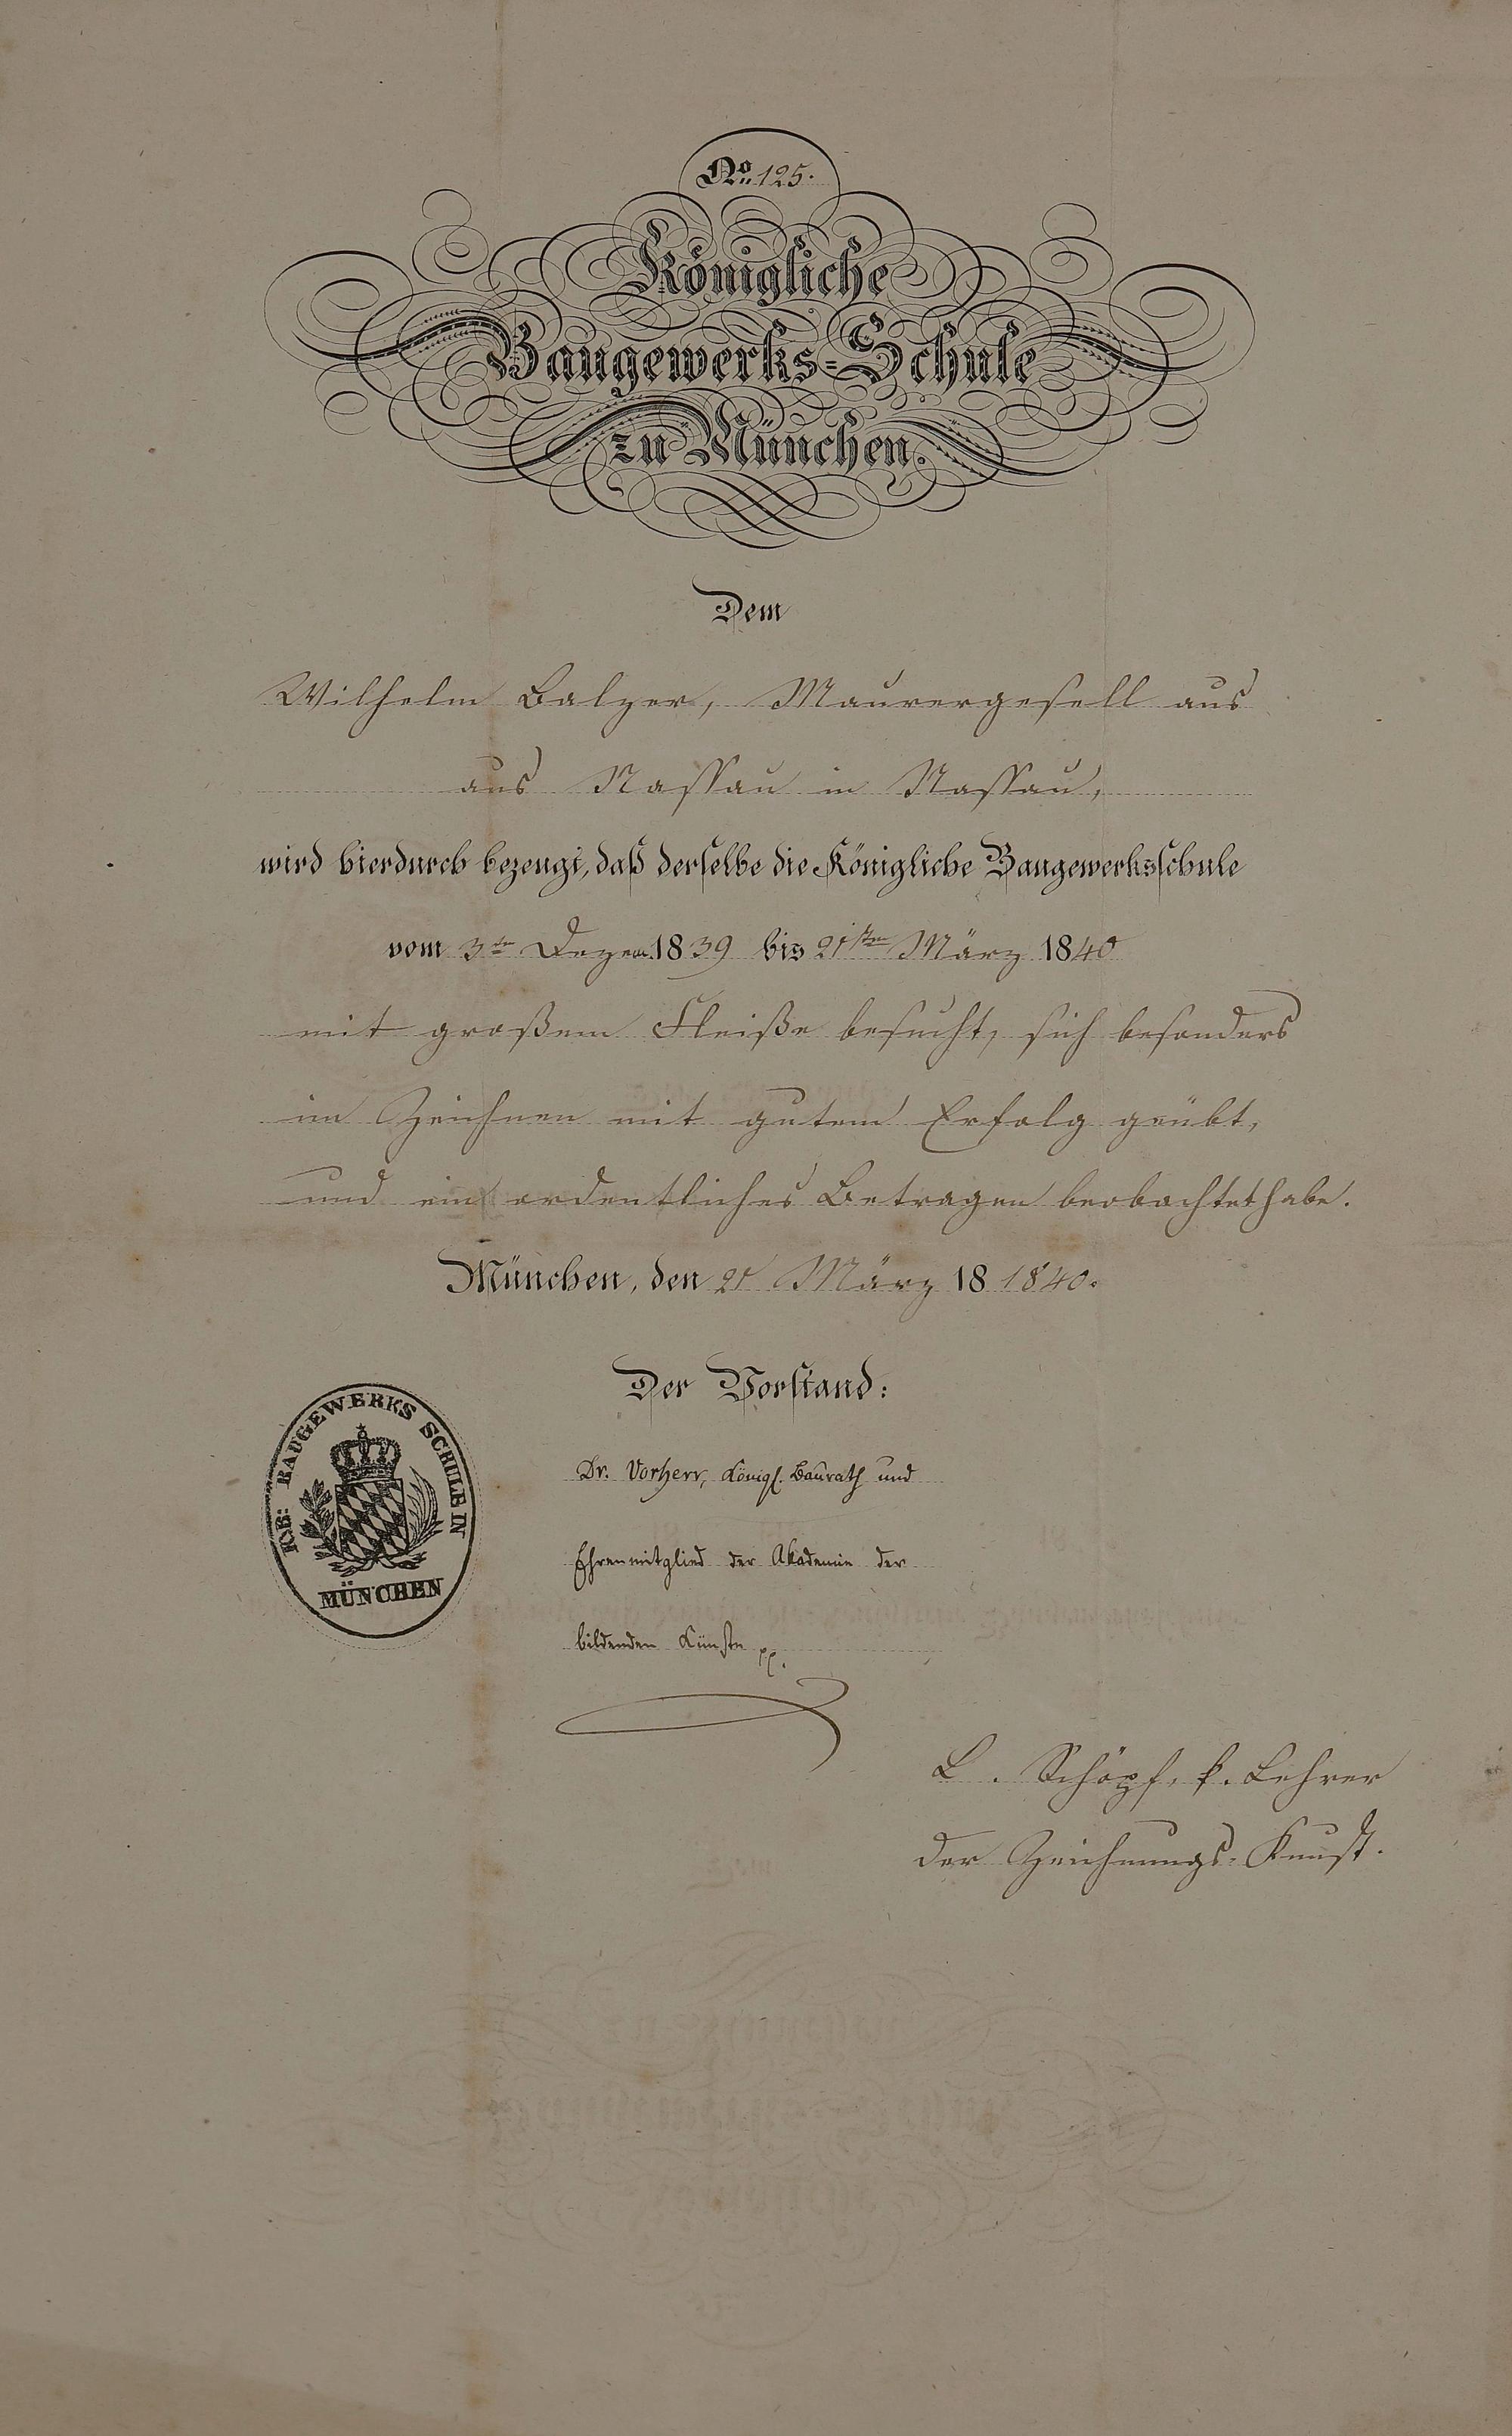 No. 125.
Königliche
Baugewerks-Schule
zu München.
Dem
Wilhelm Balzer, Maurergesell aus
aus Nassau in Nassau,
wird hierdurch bezeugt, daß derselbe die Königliche Baugewerksschule
vom 3ten Dezem. 1839 bis 21sten März 1840
mit großem Fleiße besucht, sich besonders
im Zeichnen mit gutem Erfolg geübt,
und ein ordentliches Betragen beobachtet habe.
München, den 21 März 18 1840.
Der Vorstand:
KOE: BAUGEWERKS SCHULE IN
MÜNCHEN
Dr. Vorherr, Königl. Baurath und
Ehrenmitglied der Akademie der
bildenden Künste pp.
L. Schöpf, k. Lehrer
der Zeichnungs-Kunst.